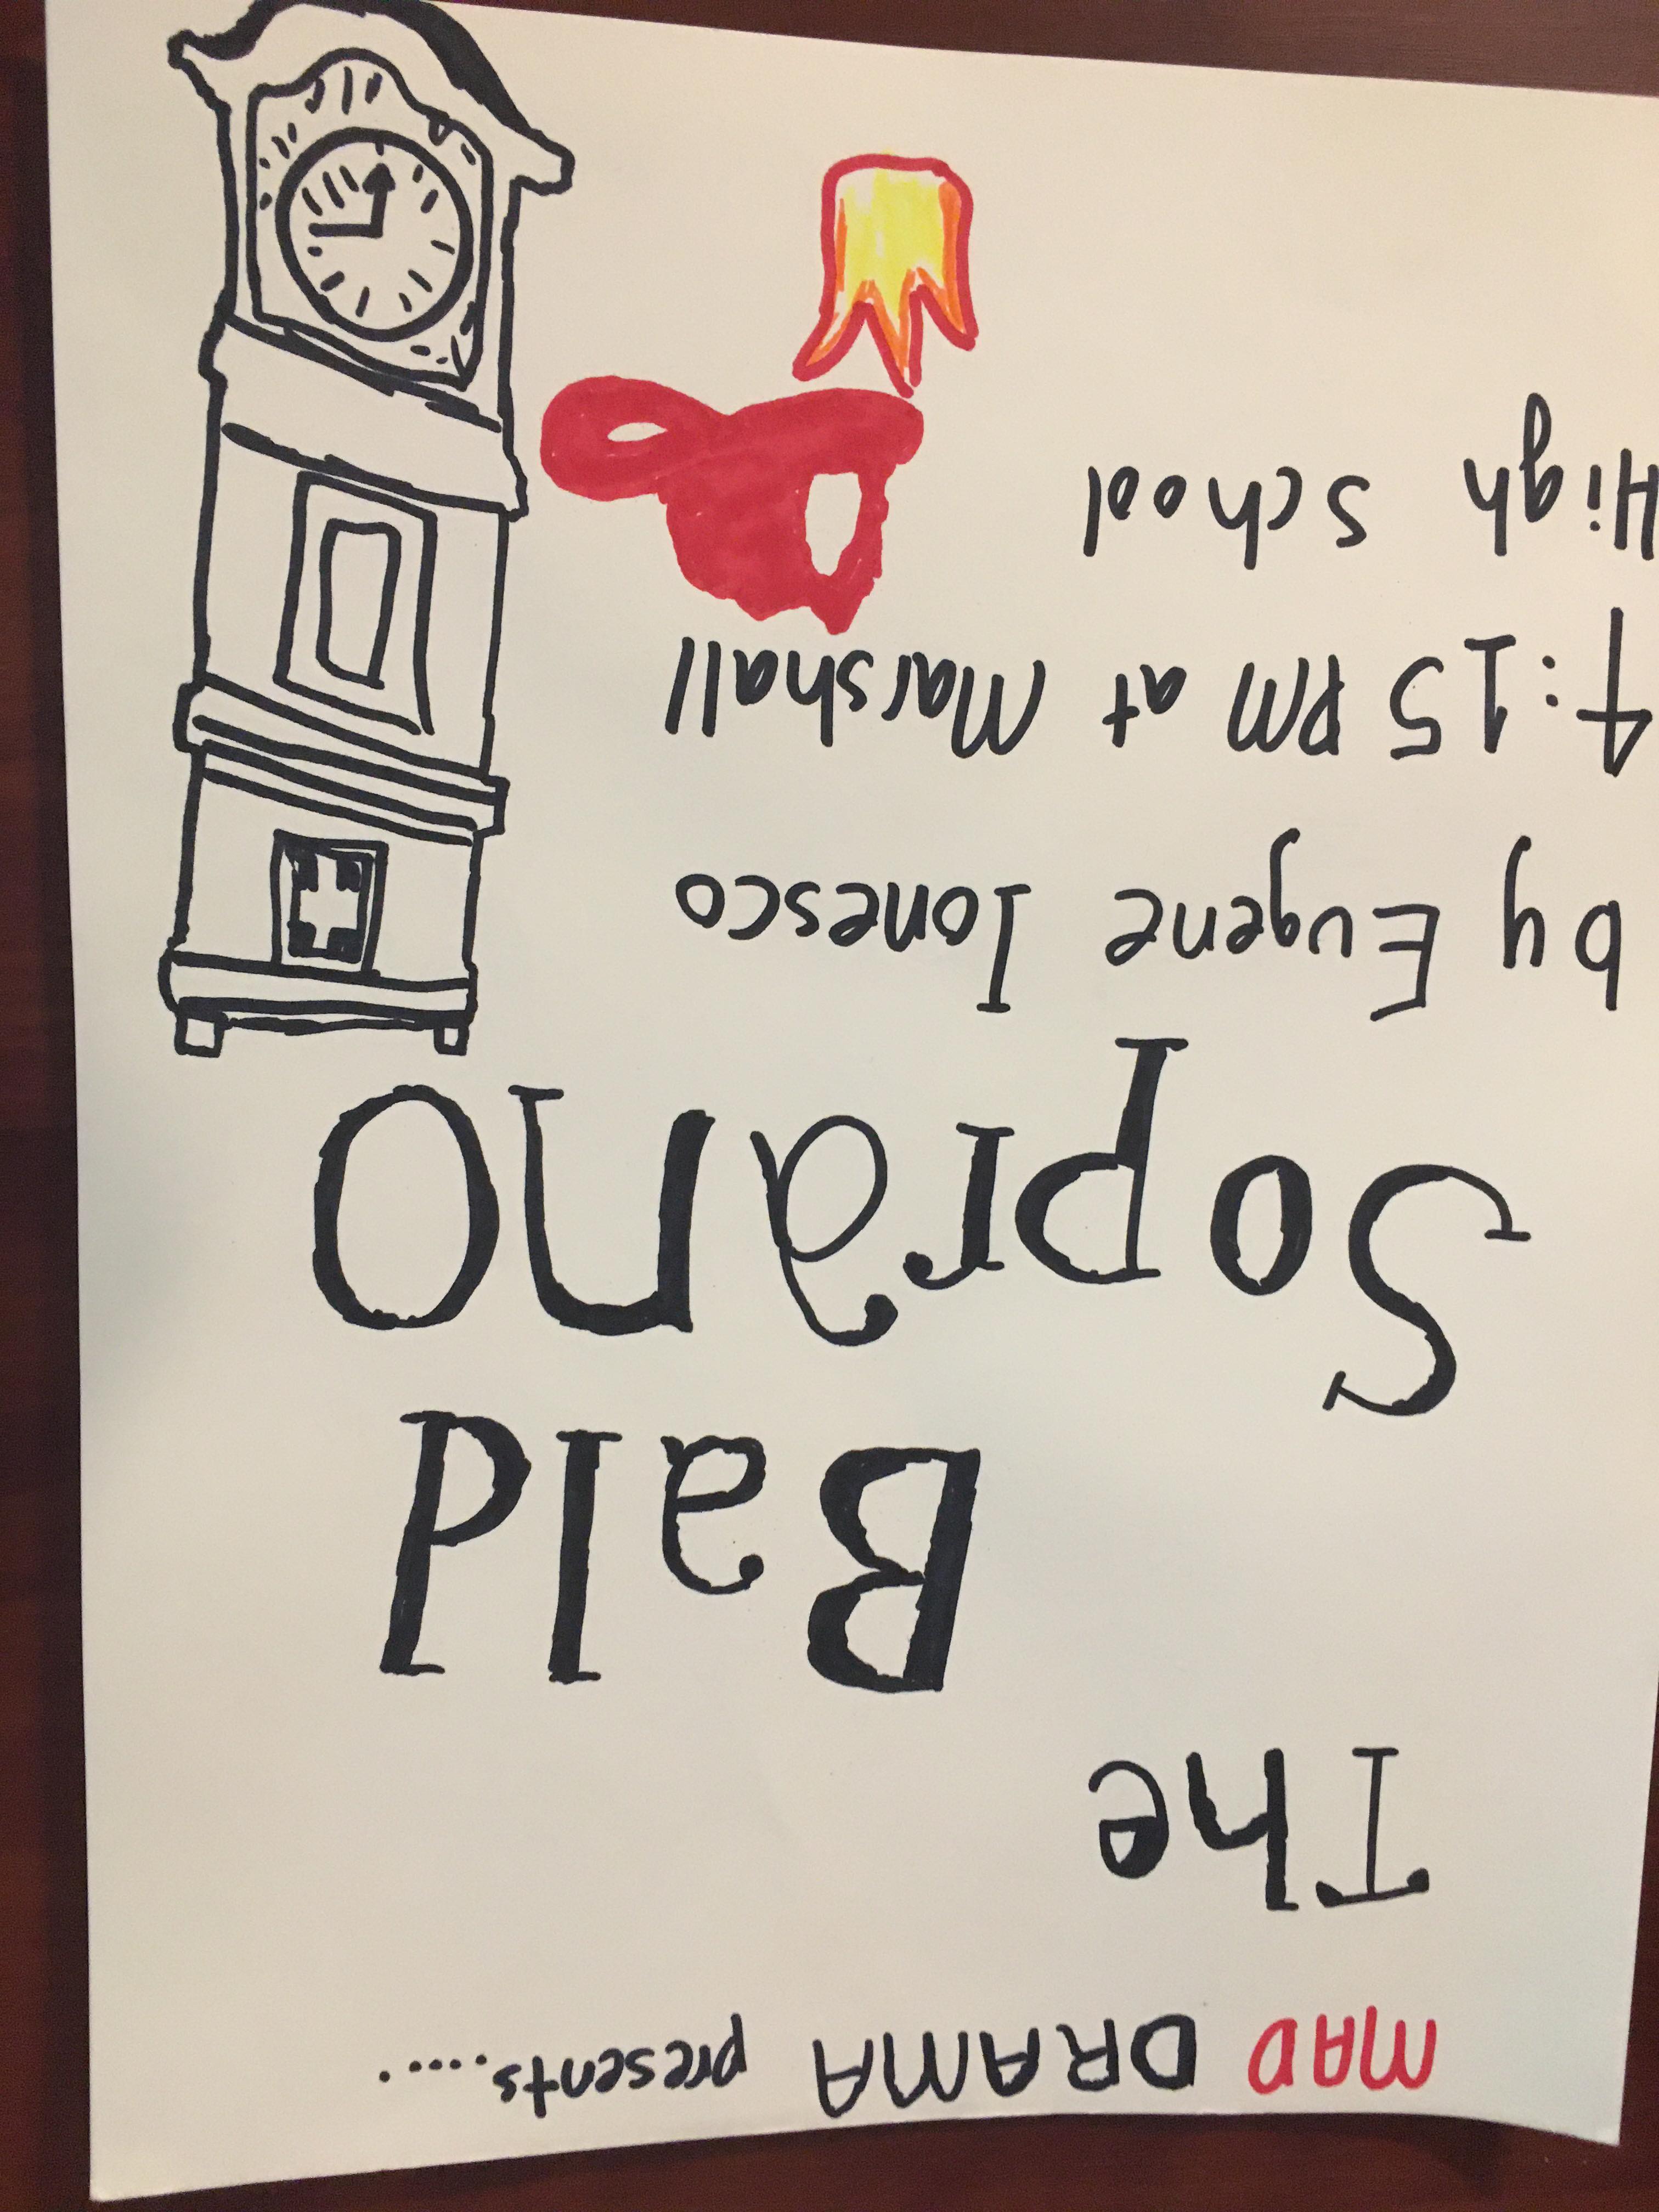 MAD DRAMA presents.....
The
Bald
Soprano
by Eugene Ionesco
4:15 PM at Marshall
High School